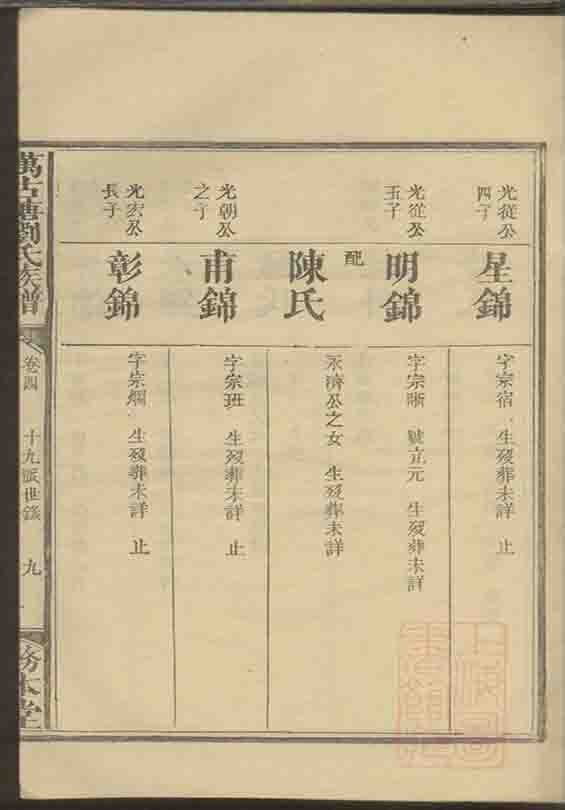 光從公
四子
星錦
字宗宿 生歿葬未詳 止
光從公
五子
明錦
字宗晰 號立元 生歿葬未詳
配
陳氏
永濟公之女 生歿葬未詳
光朝公
之子
甫錦
字宗班 生歿葬未詳 止
光宏公
長子
彰錦
字宗炯 生歿葬未詳 止
萬古塘劉氏族譜
卷四
十九派世錄
九
務本堂
上海圖
書館藏